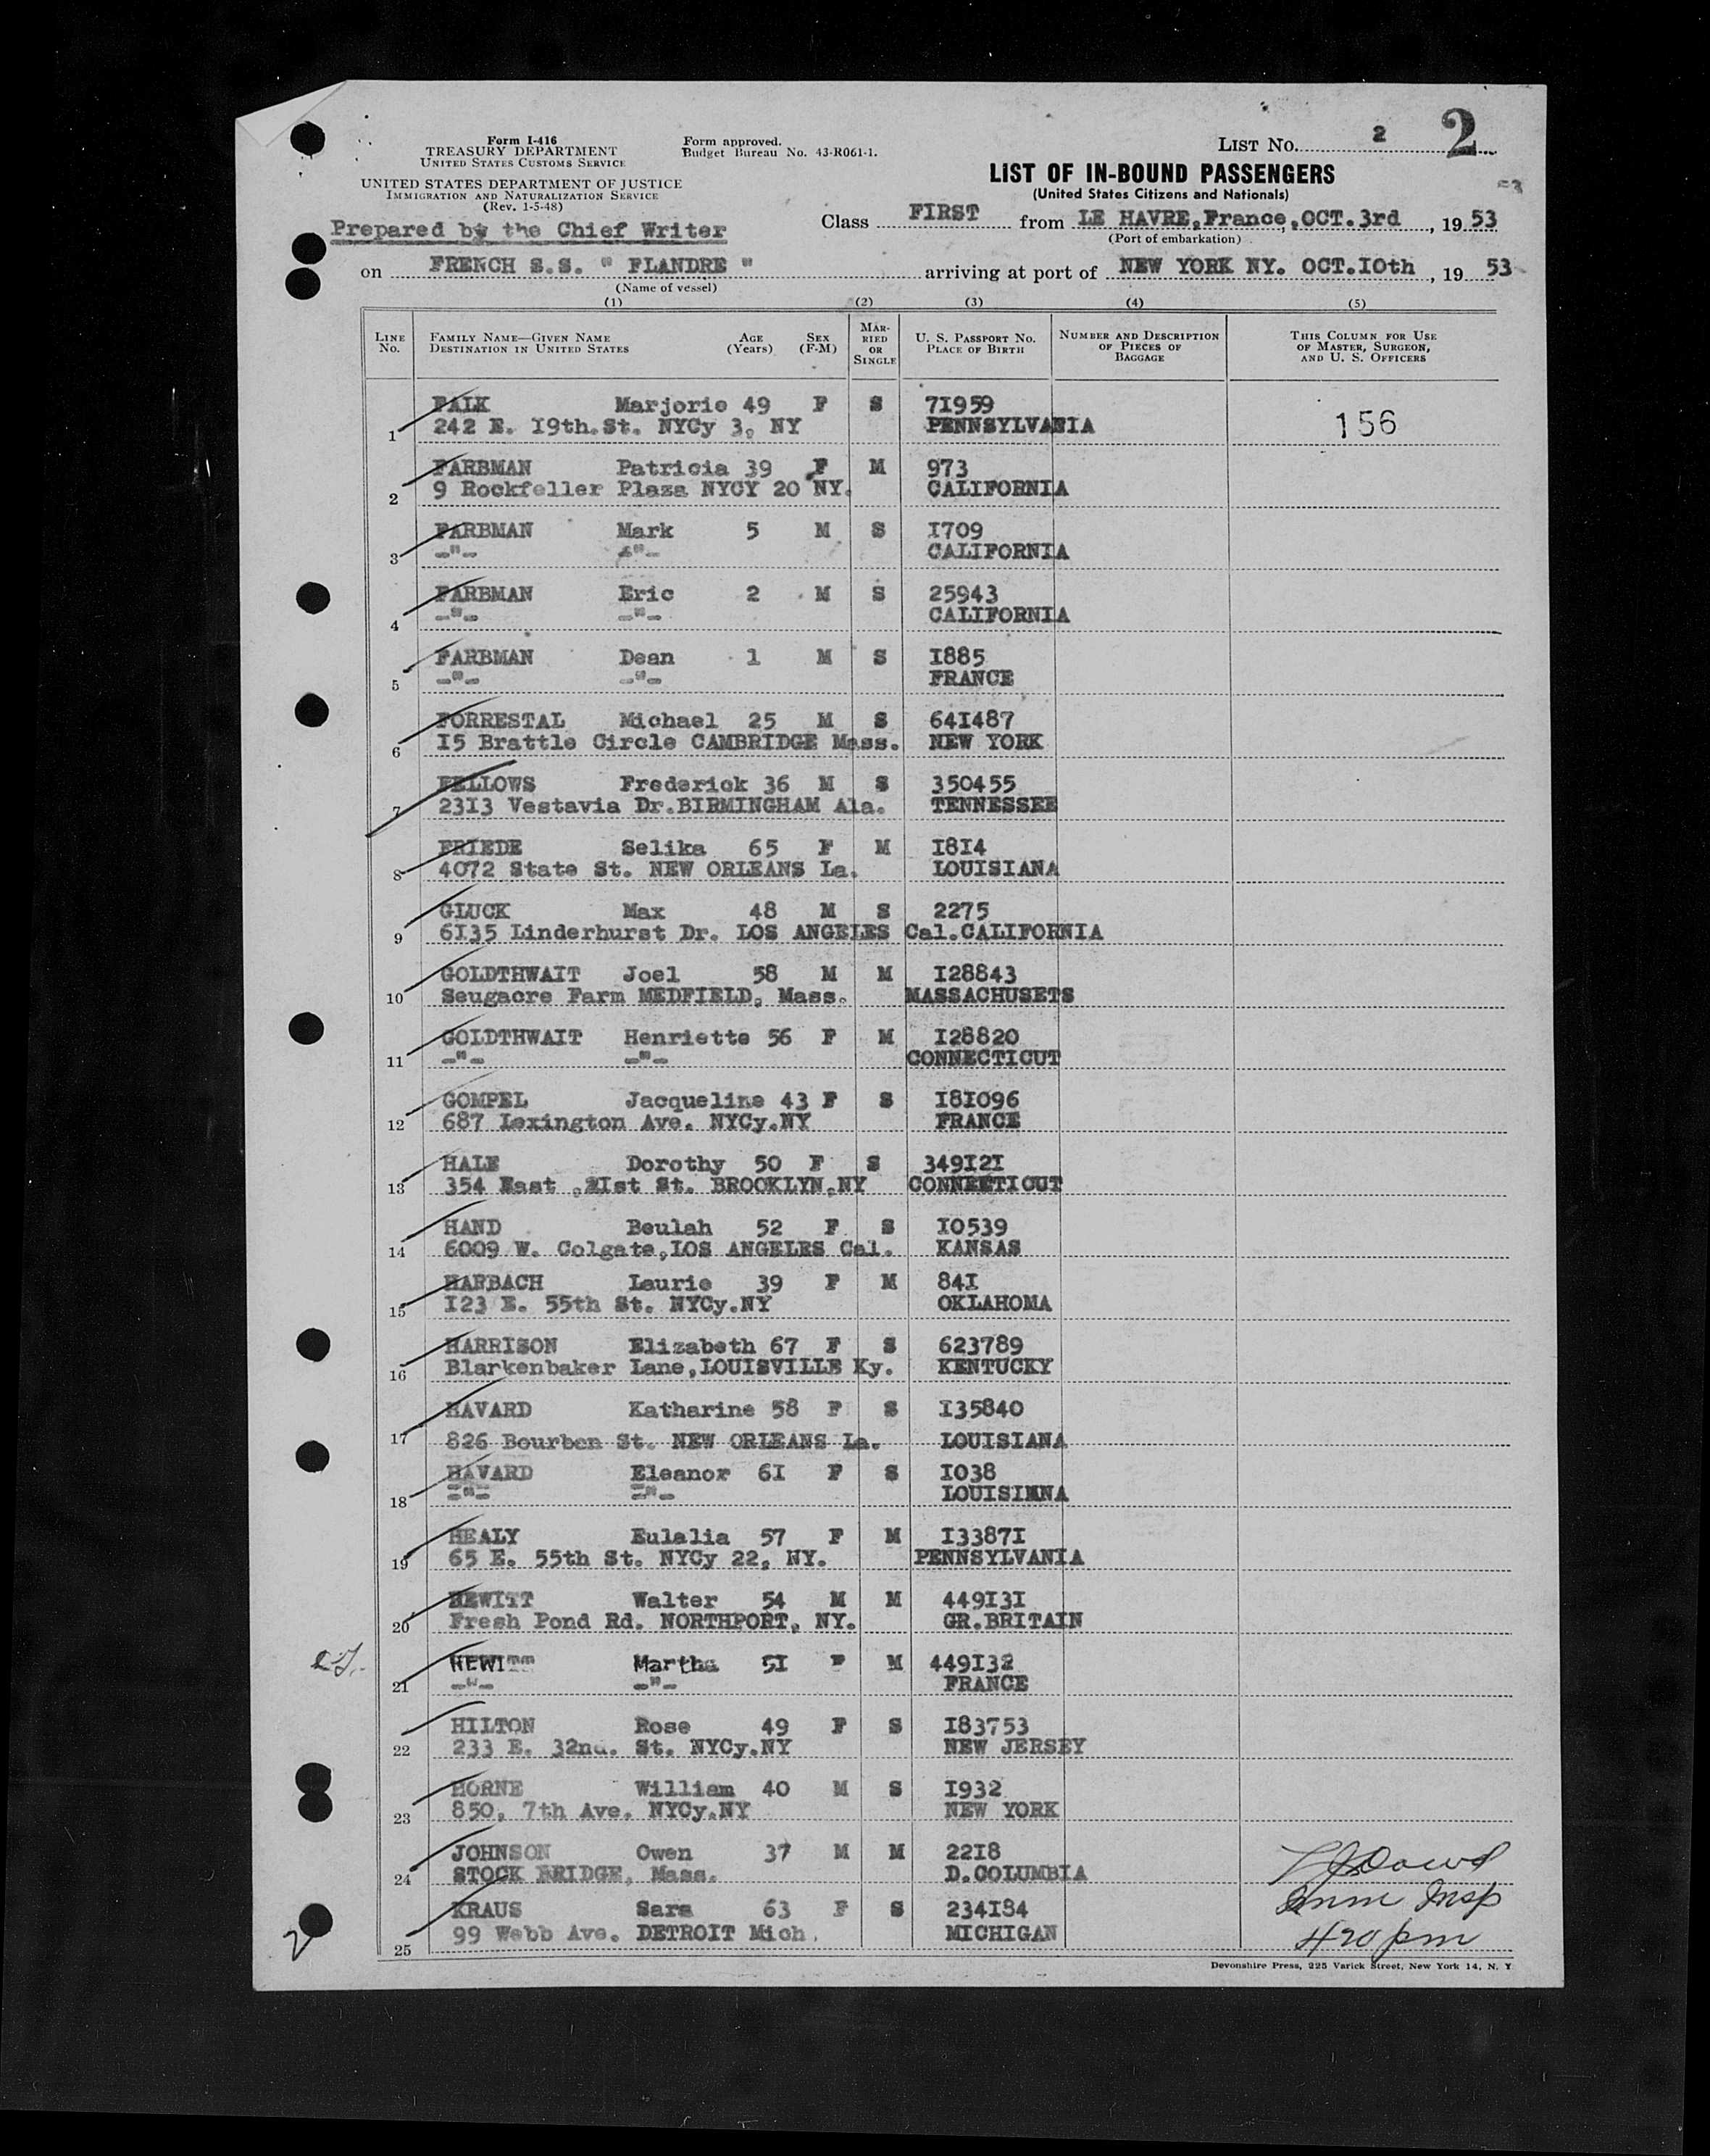 Form I-416
TREASURY DEPARTMENT
UNITED STATES CUSTOMS SERVICE
UNITED STATES DEPARTMENT OF JUSTICE
IMMIGRATION AND NATURALIZATION SERVICE
(Rev. 1-5-48)
Form approved.
Budget Bureau No. 43-R061-1.
LIST NO. 2 2
LIST OF IN-BOUND PASSENGERS
(United States Citizens and Nationals)
53
Prepared by the Chief Writer
Class FIRST from LE HAVRE, France, OCT. 3rd, 1953
(Port of embarkation)
on FRENCH S.S. " FLANDRE " arriving at port of NEW YORK NY. OCT. I0th, 1953
(Name of vessel)
(1) (2) (3) (4) (5)
LINE NO. FAMILY NAME—GIVEN NAME DESTINATION IN UNITED STATES AGE (Years) SEX (F-M) MARRIED OR SINGLE U. S. PASSPORT NO. PLACE OF BIRTH NUMBER AND DESCRIPTION OF PIECES OF BAGGAGE THIS COLUMN FOR USE OF MASTER, SURGEON, AND U. S. OFFICERS
FALK Marjorie 49 F S 7I959
1 242 E. I9th.St. NYCy 3, NY PENNSYLVANIA 156
FARBMAN Patricia 39 F M 973
2 9 Rockfeller Plaza NYCY 20 NY. CALIFORNIA
FARBMAN Mark 5 M S I709
3 -"- -"- CALIFORNIA
FARBMAN Eric 2 M S 25943
4 -"- -"- CALIFORNIA
FARBMAN Dean 1 M S I885
5 -"- -"- FRANCE
FORRESTAL Michael 25 M S 64I487
6 I5 Brattle Circle CAMBRIDGE Mass. NEW YORK
FELLOWS Frederick 36 M S 350455
7 23I3 Vestavia Dr.BIRMINGHAM Ala. TENNESSEE
FRIEDE Selika 65 F M I8I4
8 4072 State St. NEW ORLEANS La. LOUISIANA
GLUCK Max 48 M S 2275
9 6I35 Linderhurst Dr. LOS ANGELES Cal.CALIFORNIA
GOLDTHWAIT Joel 58 M M I28843
10 Seugacre Farm MEDFIELD, Mass. MASSACHUSETS
GOLDTHWAIT Henriette 56 F M I28820
11 -"- -"- CONNECTICUT
GOMPEL Jacqueline 43 F S I8I096
12 687 Lexington Ave. NYCy.NY FRANCE
HALE Dorothy 50 F S 349I2I
13 354 East 2Ist St. BROOKLYN.NY CONNETICUT
HAND Beulah 52 F S I0539
14 6009 W. Colgate,LOS ANGELES Cal. KANSAS
HARBACH Laurie 39 F M 84I
15 I23 E. 55th St. NYCy.NY OKLAHOMA
HARRISON Elizabeth 67 F S 623789
16 Blarkenbaker Lane,LOUISVILLE Ky. KENTUCKY
HAVARD Katharine 58 F S I35840
17 826 Bourbon St. NEW ORLEANS La. LOUISIANA
HAVARD Eleanor 6I F S I038
18 -"- -"- LOUISIANA
HEALY Eulalia 57 F M I3387I
19 65 E. 55th St. NYCy 22, NY. PENNSYLVANIA
HEWITT Walter 54 M M 449I3I
20 Fresh Pond Rd. NORTHPORT, NY. GR.BRITAIN
HEWITT Martha 5I F M 449I32
21 -"- -"- FRANCE
HILTON Rose 49 F S I83753
22 233 E. 32nd. St. NYCy.NY NEW JERSEY
HORNE William 40 M S I932
23 850, 7th Ave. NYCy.NY NEW YORK
JOHNSON Owen 37 M M 22I8
24 STOCK BRIDGE, Mass. D.COLUMBIA
KRAUS Sara 63 F S 234I84
Imm Insp
25 99 Webb Ave. DETROIT Mich. MICHIGAN
420 pm
2
Devonshire Press, 225 Varick Street, New York 14, N. Y